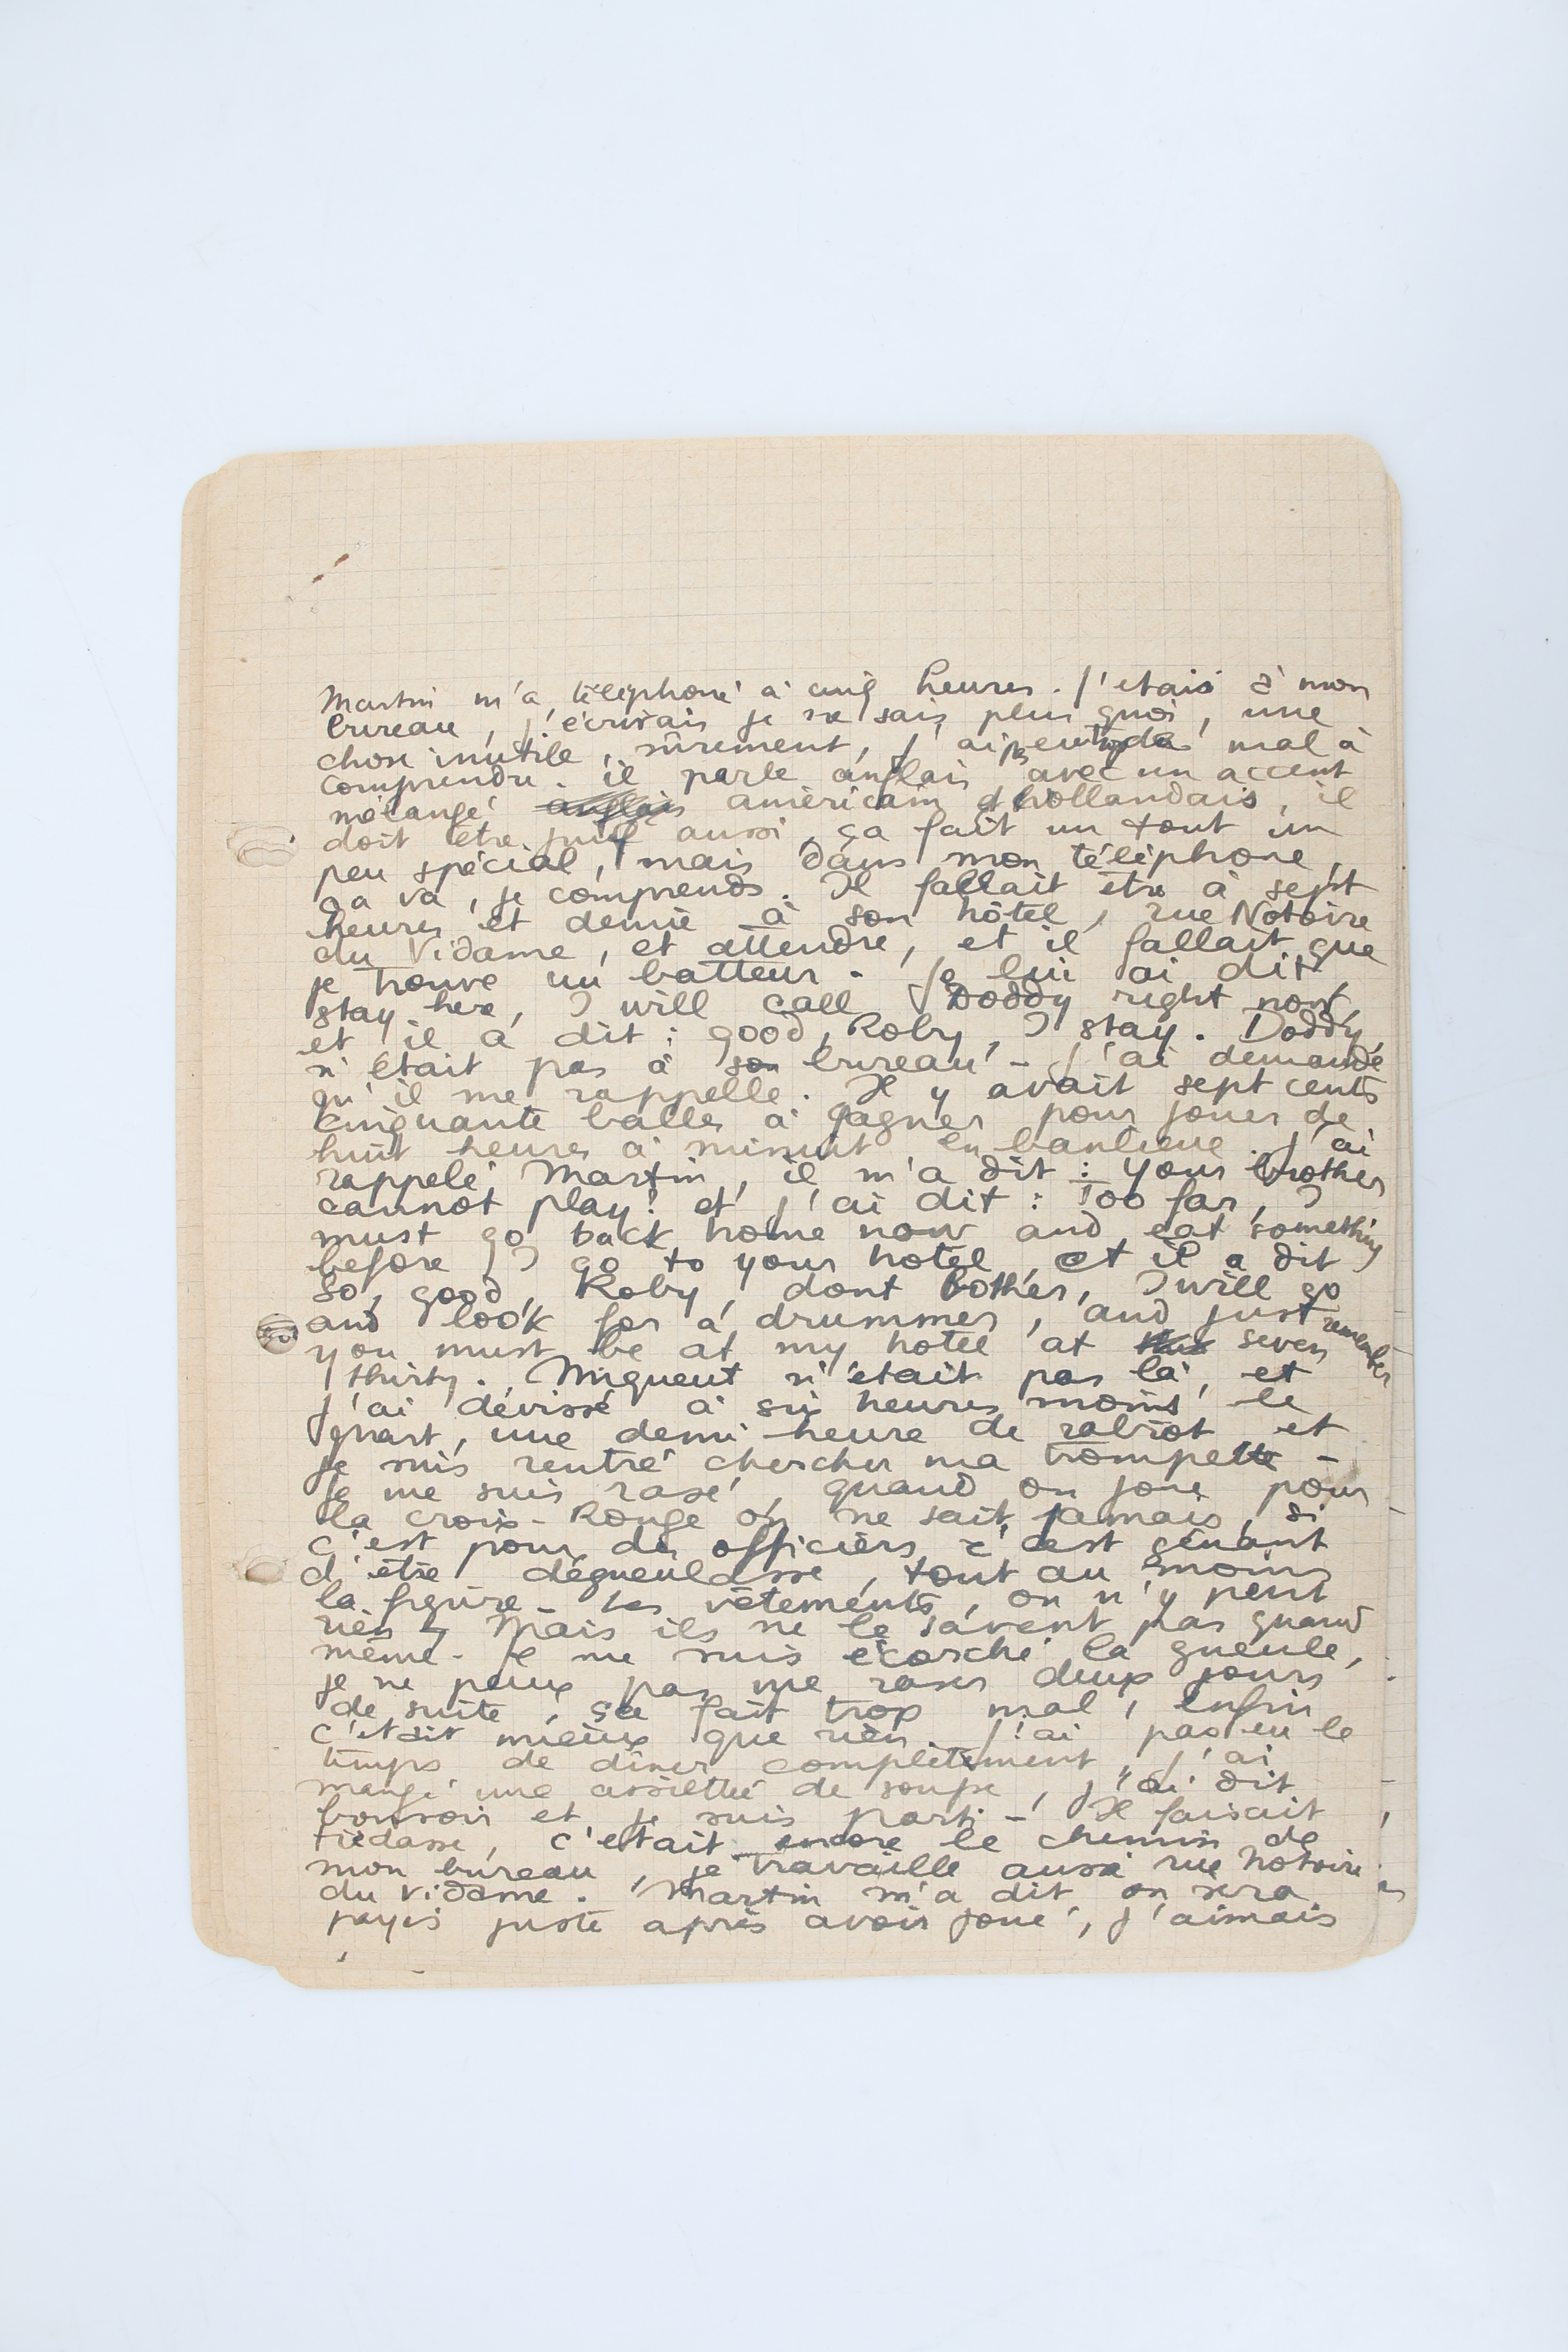 Martin m'a téléphoné à cinq heures. J'etais à mon
bureau, j'écrivais je ne sais plus quoi, une
chose inutile, sûrement, j'ai pas eu trop de mal à
comprendre. il parle anglais avec un accent
mélangé anglais américain et hollandais, il
doit être juif aussi, ça fait un tout un
peu spécial, mais dans mon téléphone,
ça va, je comprends. Il fallait être à sept
heures et demie à son hôtel, rue Notoire
du Vidame, et attendre, et il fallait que
je trouve un batteur. Je lui ai dit
stay here, I will call Doddy right now,
et il a dit : good, Roby, I stay. Doddy
n'était pas à son bureau - J'ai demandé
qu'il me rappelle. Il y avait sept cents
cinquante balles à gagner pour jouer de
huit heures à minuit en banlieue. J'ai
rappelé Martin, il m'a dit : Your brother
cannot play? et j'ai dit : Too far, I
must go back home now and eat something
before I go to your hotel, et il a dit
so, good, Roby, dont bother, I will go
and look for a drummer, and just remember
you must be at my hotel at seven
thirty. Miqueut n'était pas là, et
j'ai dévissé à six heures moins le
quart, une demi-heure de rabiot et
je suis rentré chercher ma trompette -
Je me suis rasé, quand on joue pour
la croix-Rouge on ne sait jamais, si
c'est pour des officiers c'est gênant
d'être dégueulasse, tout au moins
la figure - Les vêtements, on n'y peut
rien, Mais ils ne le savent pas quand
même - Je me suis écorché la gueule,
je ne peux pas me raser deux jours
de suite, ça fait trop mal, enfin
c'était mieux que rien. J'ai pas eu le
temps de dîner complètement, j'ai
mangé une assiettée de soupe, j'ai dit
bonsoir et je suis parti - Il faisait
tiédasse, c'etait encore le chemin de
mon bureau, je travaille aussi rue Notoire
du Vidame. Martin m'a dit on sera
payés juste après avoir joué, j'aimais